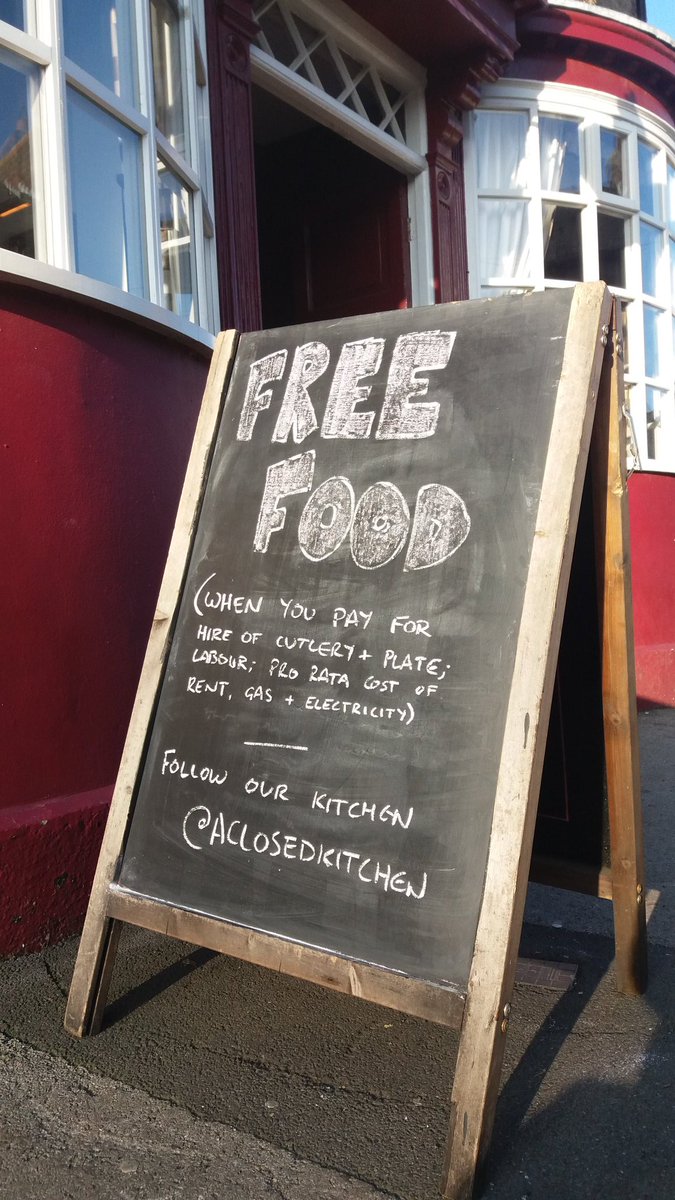 FREE
FOOD
(WHEN YOU PAY FOR
HIRE OF CUTLERY + PLATE;
LABOUR; PRO RATA COST OF
RENT, GAS + ELECTRICITY)
FOLLOW OUR KITCHEN
@ACLOSEDKITCHEN